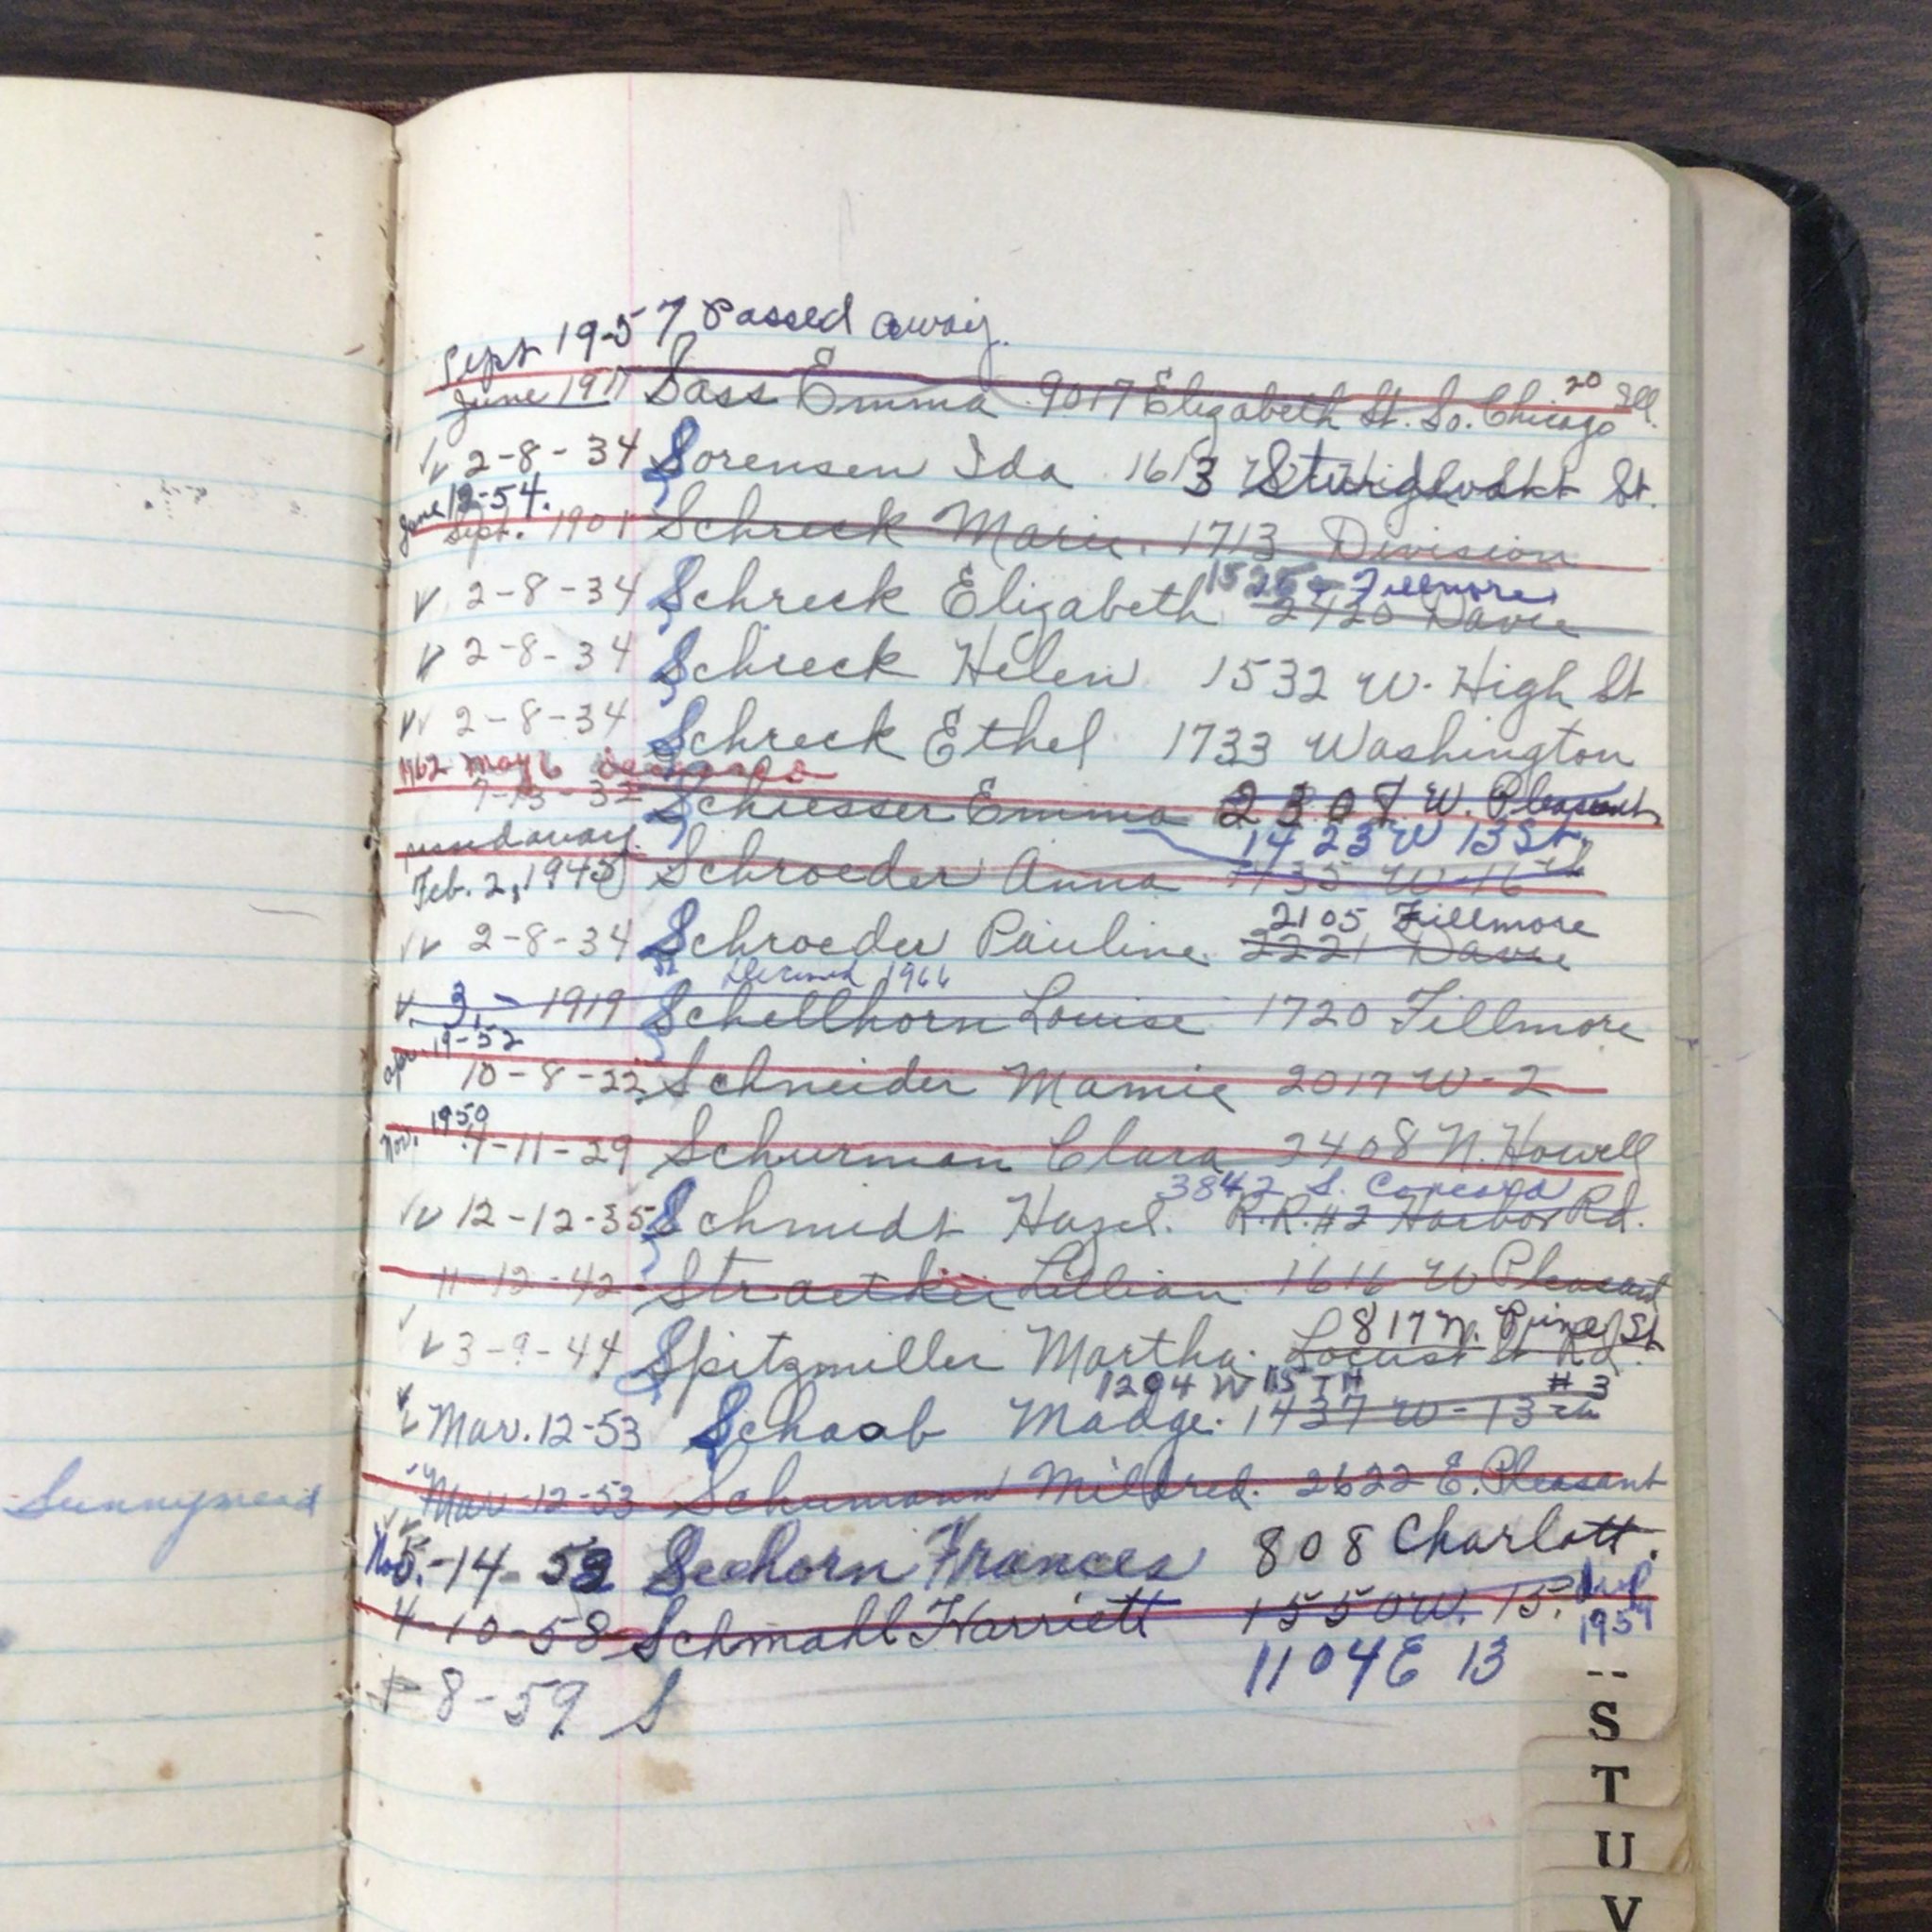 Sept 19-57 Passed away.
June 1911 Sass Emma 9017 Elizabeth St. So. Chicago 20 Ill.
2-8-34 Sorensen Ida 1613 St.
June 12-54.
Sept. 1901 Schreck Marie. 1713 Division
Fillmore
2-8-34 Schreck Elizabeth 2420 Davie
2-8-34 Schreck Helen 1532 W. High St
2-8-34 Schreck Ethel 1733 Washington
1962 May 6 deceased
7-13-32 Schiesser Emma 2307 W. Pleasant
away. 1423 W 13 St.
Feb. 2, 1945 Schroeder Anna 1435 W-16th
2105 Fillmore
2-8-34 Schroeder Pauline 2221 Davie
Deceased 1966
3, - 1919 Schellhorn Louise 1720 Fillmore
Apr. 19-52
10-8-22 Schneider Mamie 2017 W-2
Nov. 1950
4-11-29 Schurman Clara 2408 N. Howell
3842 S. Concord
12-12-35 Schmidt Hazel. R.R.#2 Harbor Rd.
11-12-42 Lillian 1616 W Pleasant
817 N. Pine St
3-9-44 Spitzmiller Martha. Locust St Rd.
1204 W 15TH #3
Mar. 12-53 Schaab Madge. 1437 W-13th
Mar 12-53 Schumann Mildred. 2622 E. Pleasant
Sunnymead
Nov.-14-53 Seehorn Frances 808 Charlott.
4-10-58 Schmahl Harriett 1550 W. 15.
1959
1104 E 13
8-59 S
--
S
T
U
V